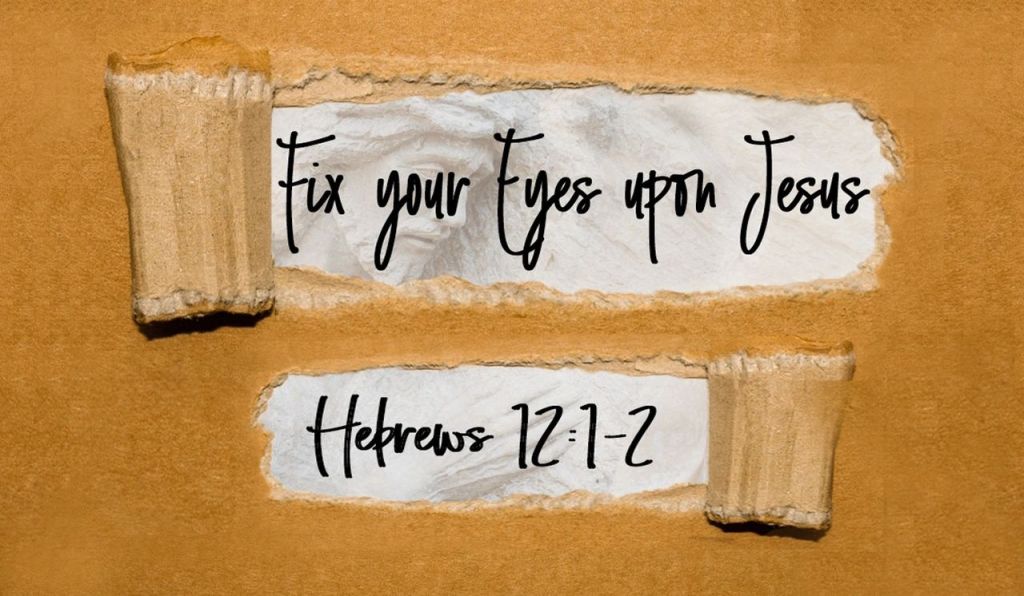 Fix your Eyes upon Jesus
Hebrews 12:1-2